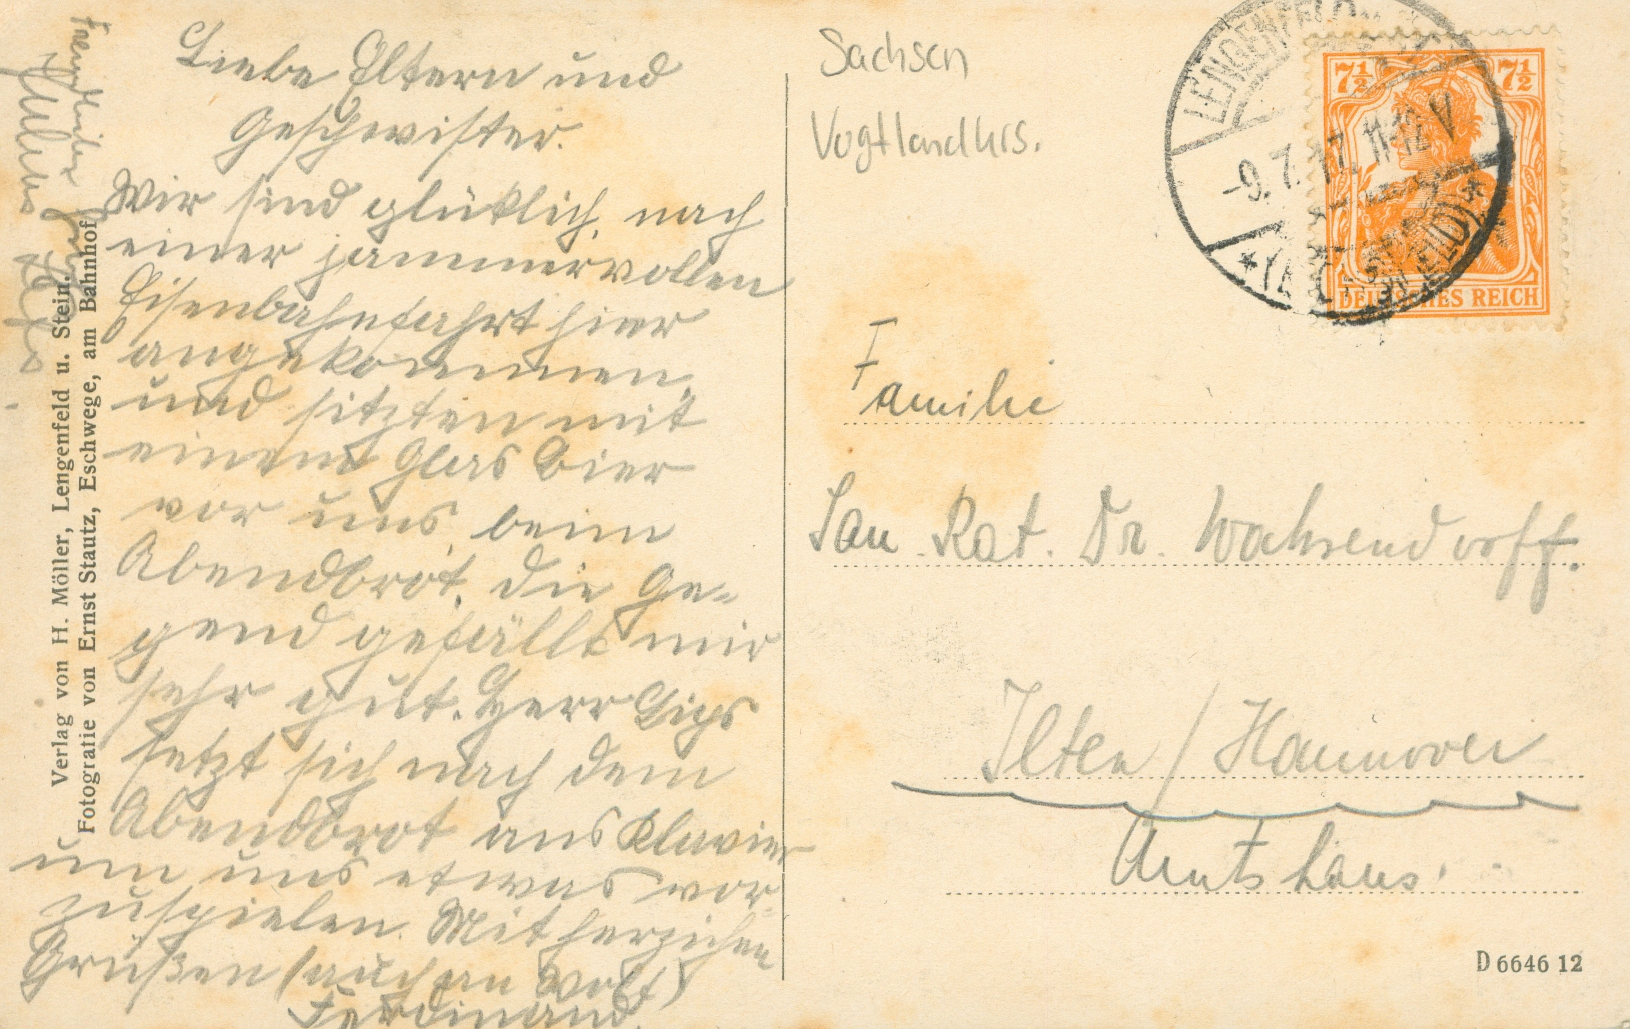 Liebe Eltern und
Geschwister.
Wir sind glüklich, nach
einer jammervollen
Eisenbahnfahrt hier
angekommen,
und sitzten mit
einem Glas Bier
vor uns, beim
Abendbrot. Die Ge-
gend gefällt mir
sehr gut. Herr Lips
setzt sich nach dem
Abendbrot ans Klavier
um uns etwas vor-
zuspielen. Mit herzichen
Grüßen (auch an Wolf)
Ferdinand.
Verlag von H. Möller, Lengenfeld u. Stein.
Fotografie von Ernst Stautz, Eschwege, am Bahnhof
Sachsen
Vogtlandkrs.
LENGENFELD
-9.7.17. 11-12 V
7½ 7½
DEUTSCHES REICH
Familie
San. Rat. Dr. Wahrendorff.
Ilten / Hannover
Amtshaus.
D 6646 12